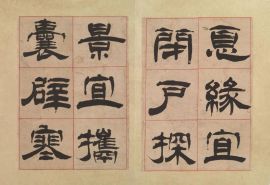 息緣宜
閉戶探
景宜攜
囊辟寒